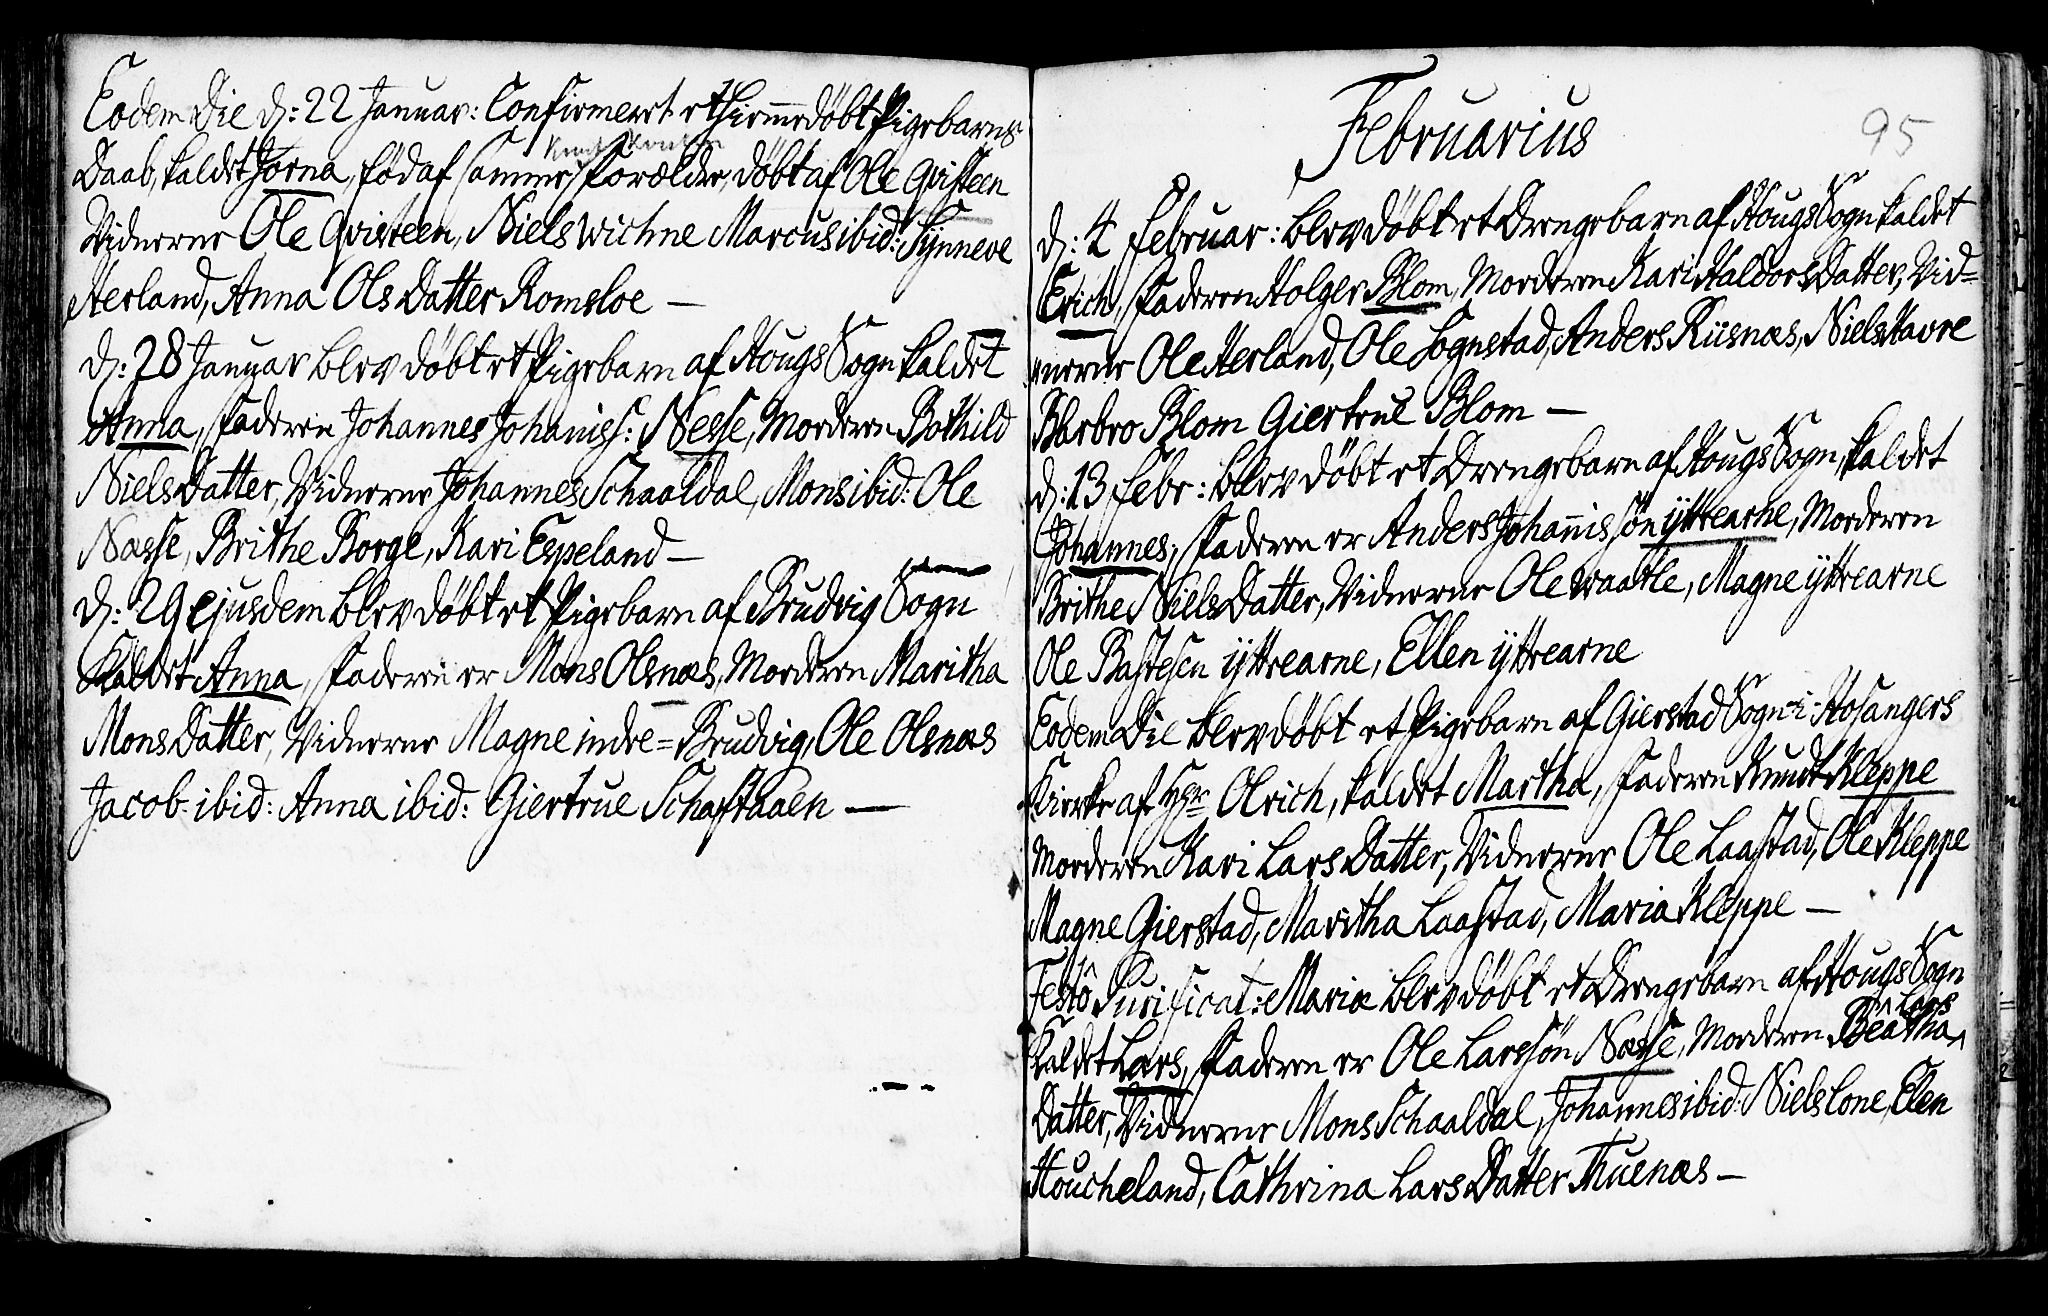 Eodem Die d: 22 Januar: Confirmeret et hiemmedøbt Pigebarns
Daab, kaldet Jorna, fød af samme Forældre, døbt af Ole Qvisteen
Vidnerne Ole Qvisteen, Niels Wichne Marcus ibid: Synneve
Herland, Anna Ols Datter Romsloe —
d: 28 Januar blev døbt et Pigebarn af Hougs Sogn kaldet
Anna, Faderen Johannes Johaniss: Nesse, Moderen Bothild
Niels Datter, Vidnerne Johannes Schaaldal, Mons ibid: Ole
Næsse, Brithe Borge, Kari Espeland —
d: 29 ejusdem blev døbt et Pigebarn af Brudvig Sogn
Kaldet Anna, Faderen er Mons Olsnæs, Moderen Maritha
Mons Datter, Vidnerne Magne indre = Brudvig, Ole Olsnæs
Jacob ibid: Anna ibid: Giertrue Schaftaaen —
Februarius
95
d: 4 Februar: blev døbt et Drengebarn af Hougs Sogn kaldet
Erich, Faderen Holger Blom, Moderen Kari Haldors Datter, Vid=
nerne Ole Herland, Ole Sognstad, Anders Riisnæs, Niels Havre
Barbro Blom Giertrue Blom —
d: 13 Febr: blev døbt et Drengebarn af Hougs Sogn, kaldet
Johannes, Faderen er Anders Johanissøn yttrearne, Moderen
Brithe Niels Datter, Vidnerne Ole Waatle, Magne yttrearne
Ole Bastesen yttrearne, Ellen yttrearne
Eodem Die blev døbt et Pigebarn af Gierstad Sogn i Hosangers
Kirke af Hr Olrich, kaldet Martha, Faderen Knudt Kleppe
Moderen Kari Lars Datter, Vidnerne Ole Laastad, Ole Kleppe
Magne Gierstad, Maritha Laastad, Maria Kleppe —
Festô Purificat: Mariæ blev døbt et Drengebarn af Hougs Sogn
Kaldet Lars, Faderen er Ole Larssøn Næsse, Moderen Beatha Lars
Datter, Vidnerne Mons Schaaldal, Johannes ibid: Niels Lone, Elen
Houcheland, Cathrina Lars Datter Thuenæs —